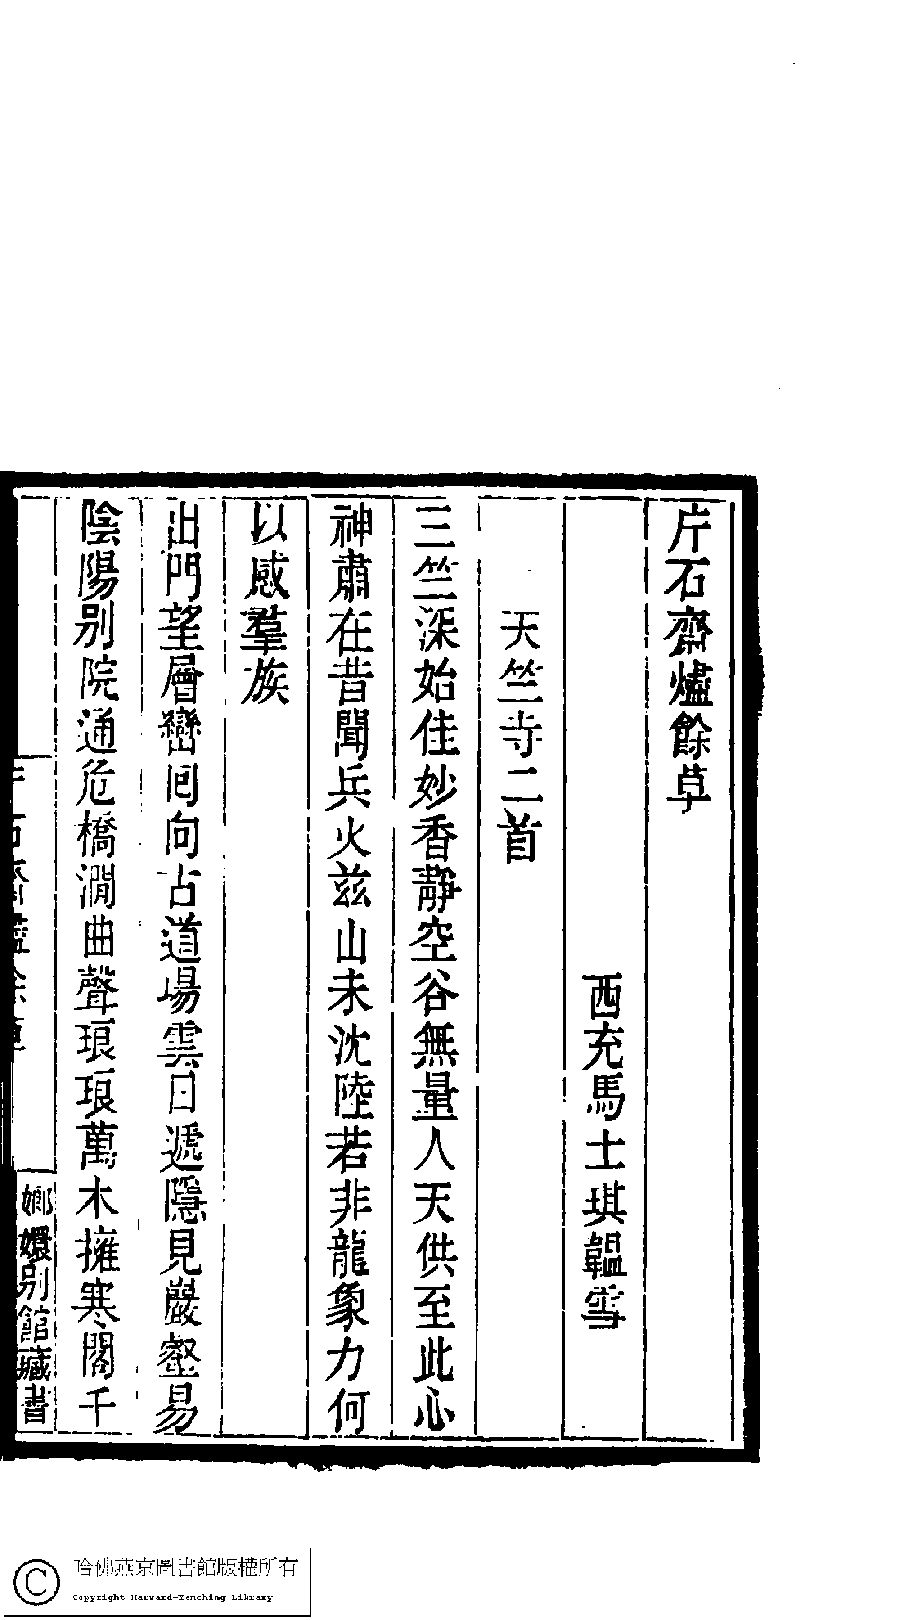 片石齋爐餘草
西充馬士琪韞雪
天竺寺二首
三竺深始佳妙香靜空谷無量人天供至此心
神肅在昔聞兵火茲山未沈陸若非龍象力何
以感羣族
出門望層巒回向占道場雲日遞隱見巖壑易
陰陽別院通危橋澗曲聲琅琅萬木擁寒閣千
嫏嬛別館藏書
哈佛燕京圖書館版權所有
Copyright Harvard-Yenching Library